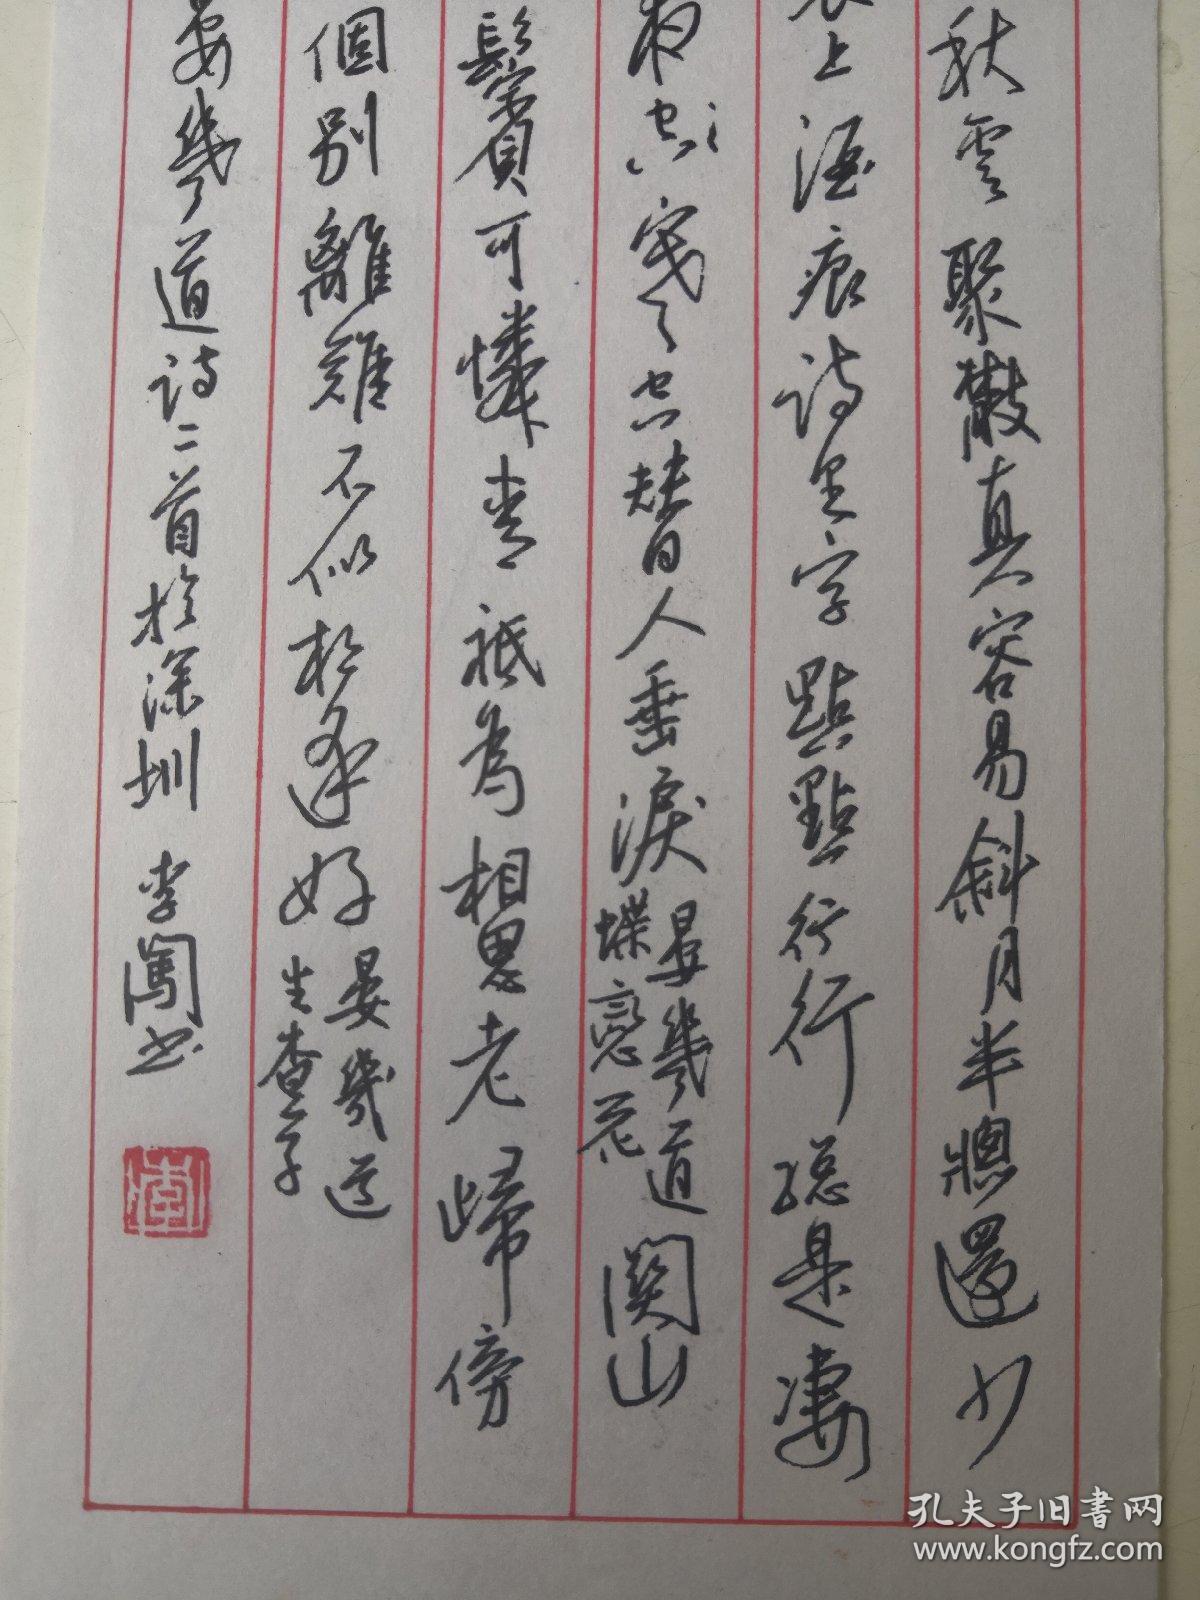 秋雲聚散真容易斜月半牕還少
衣上酒痕詩里字點點行行總是淒
夜寒空替人垂淚
晏幾道
蝶戀花
關山
鬢可憐青祇為相思老歸傍
個別離難不似相逢好
晏幾道
生查子
晏幾道诗二首於深圳 李闖书
孔夫子旧书网
www.kongfz.com